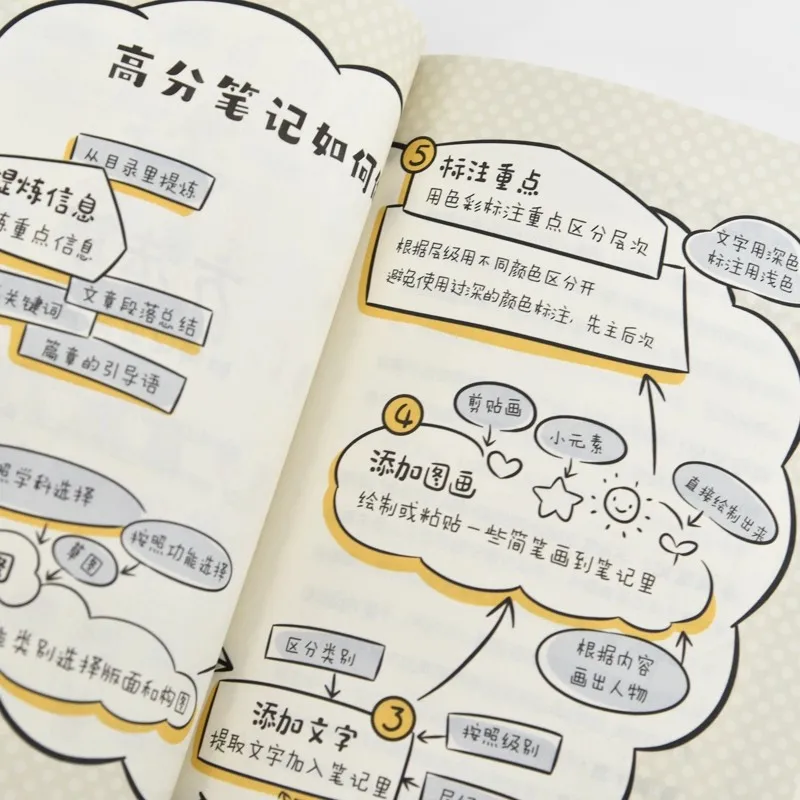 高分笔记如何
从目录里提炼
提炼信息
炼重点信息
关键词
文章段落总结
篇章的引导语
照学科选择
草图
按照功能选择
图
类别选择版面和构图
5
标注重点
用色彩标注重点区分层次
根据层级用不同颜色区分开
避免使用过深的颜色标注，先主后次
文字用深色
标注用浅色
4
剪贴画
小元素
直接绘制出来
添加图画
绘制或粘贴一些简笔画到笔记里
根据内容
画出人物
区分类别
3
添加文字
提取文字加入笔记里
按照级别